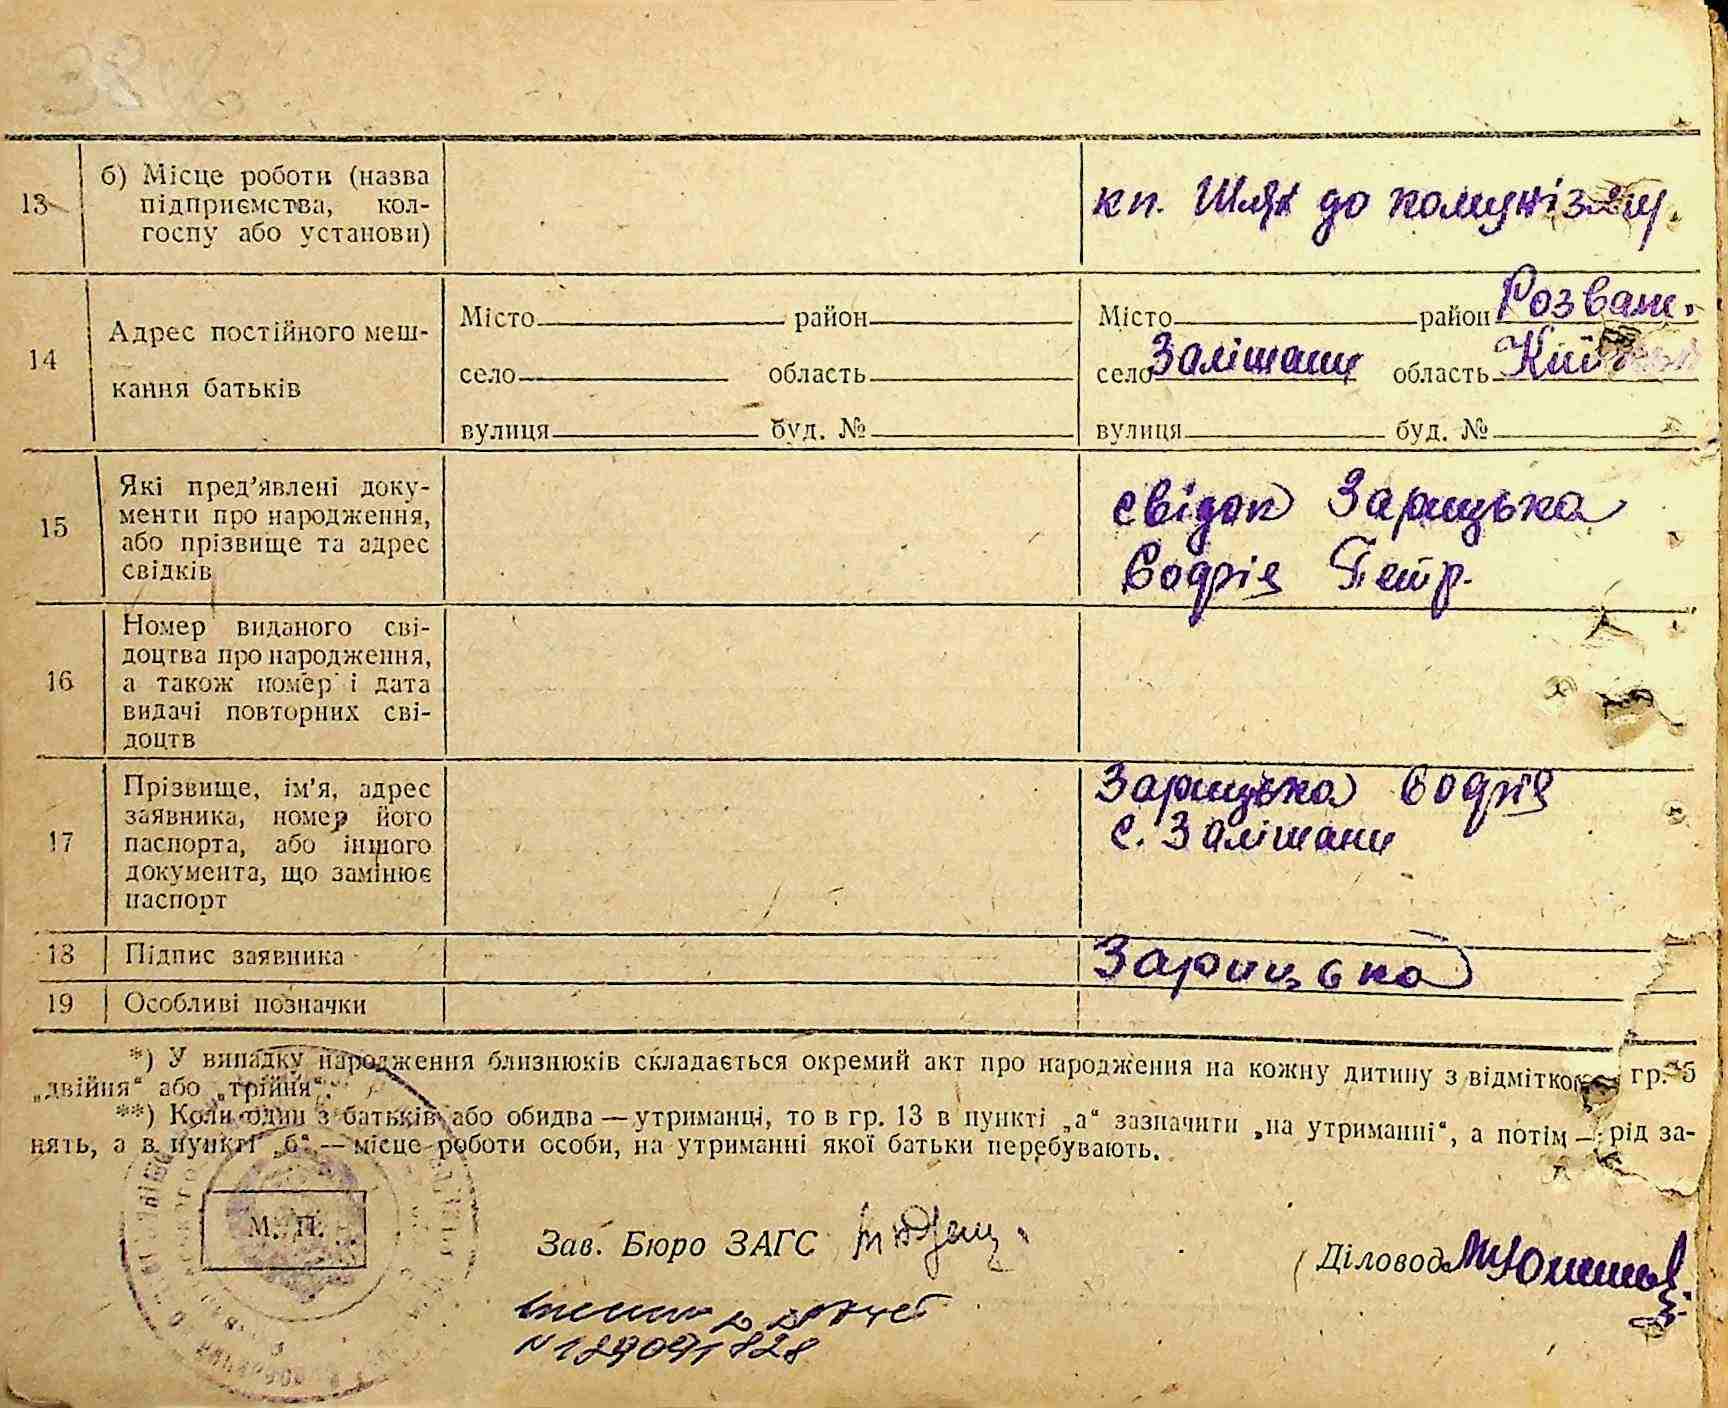 13 б) Місце роботи (назва
підприємства, кол-
госпу або установи)
кп. Шлях до комунізму.
14 Адрес постійного меш-
кання батьків
Місто район Місто район Розваж.
село область село Залішани область
вулиця буд. № вулиця буд. №
15 Які пред'явлені доку-
менти про народження,
або прізвище та адрес
свідків
свідок Зарицька
Софія Петр.
16 Номер виданого сві-
доцтва про народження,
а також номер і дата
видачі повторних сві-
доцтв
17 Прізвище, ім'я, адрес
заявника, номер його
паспорта, або іншого
документа, що замінює
паспорт
Зарицька Софія
с. Залішани
18 Підпис заявника Зарицька
19 Особливі позначки
*) У випадку народження близнюків складається окремий акт про народження на кожну дитину з відміткою гр. 5
„двійня“ або „трійня“.
**) Коли один з батьків або обидва — утриманці, то в гр. 13 в пункті „а“ зазначити „на утриманні“, а потім — рід за-
нять, а в пункті „б“ — місце роботи особи, на утриманні якої батьки перебувають.
М. П.
Зав. Бюро ЗАГС
Діловод